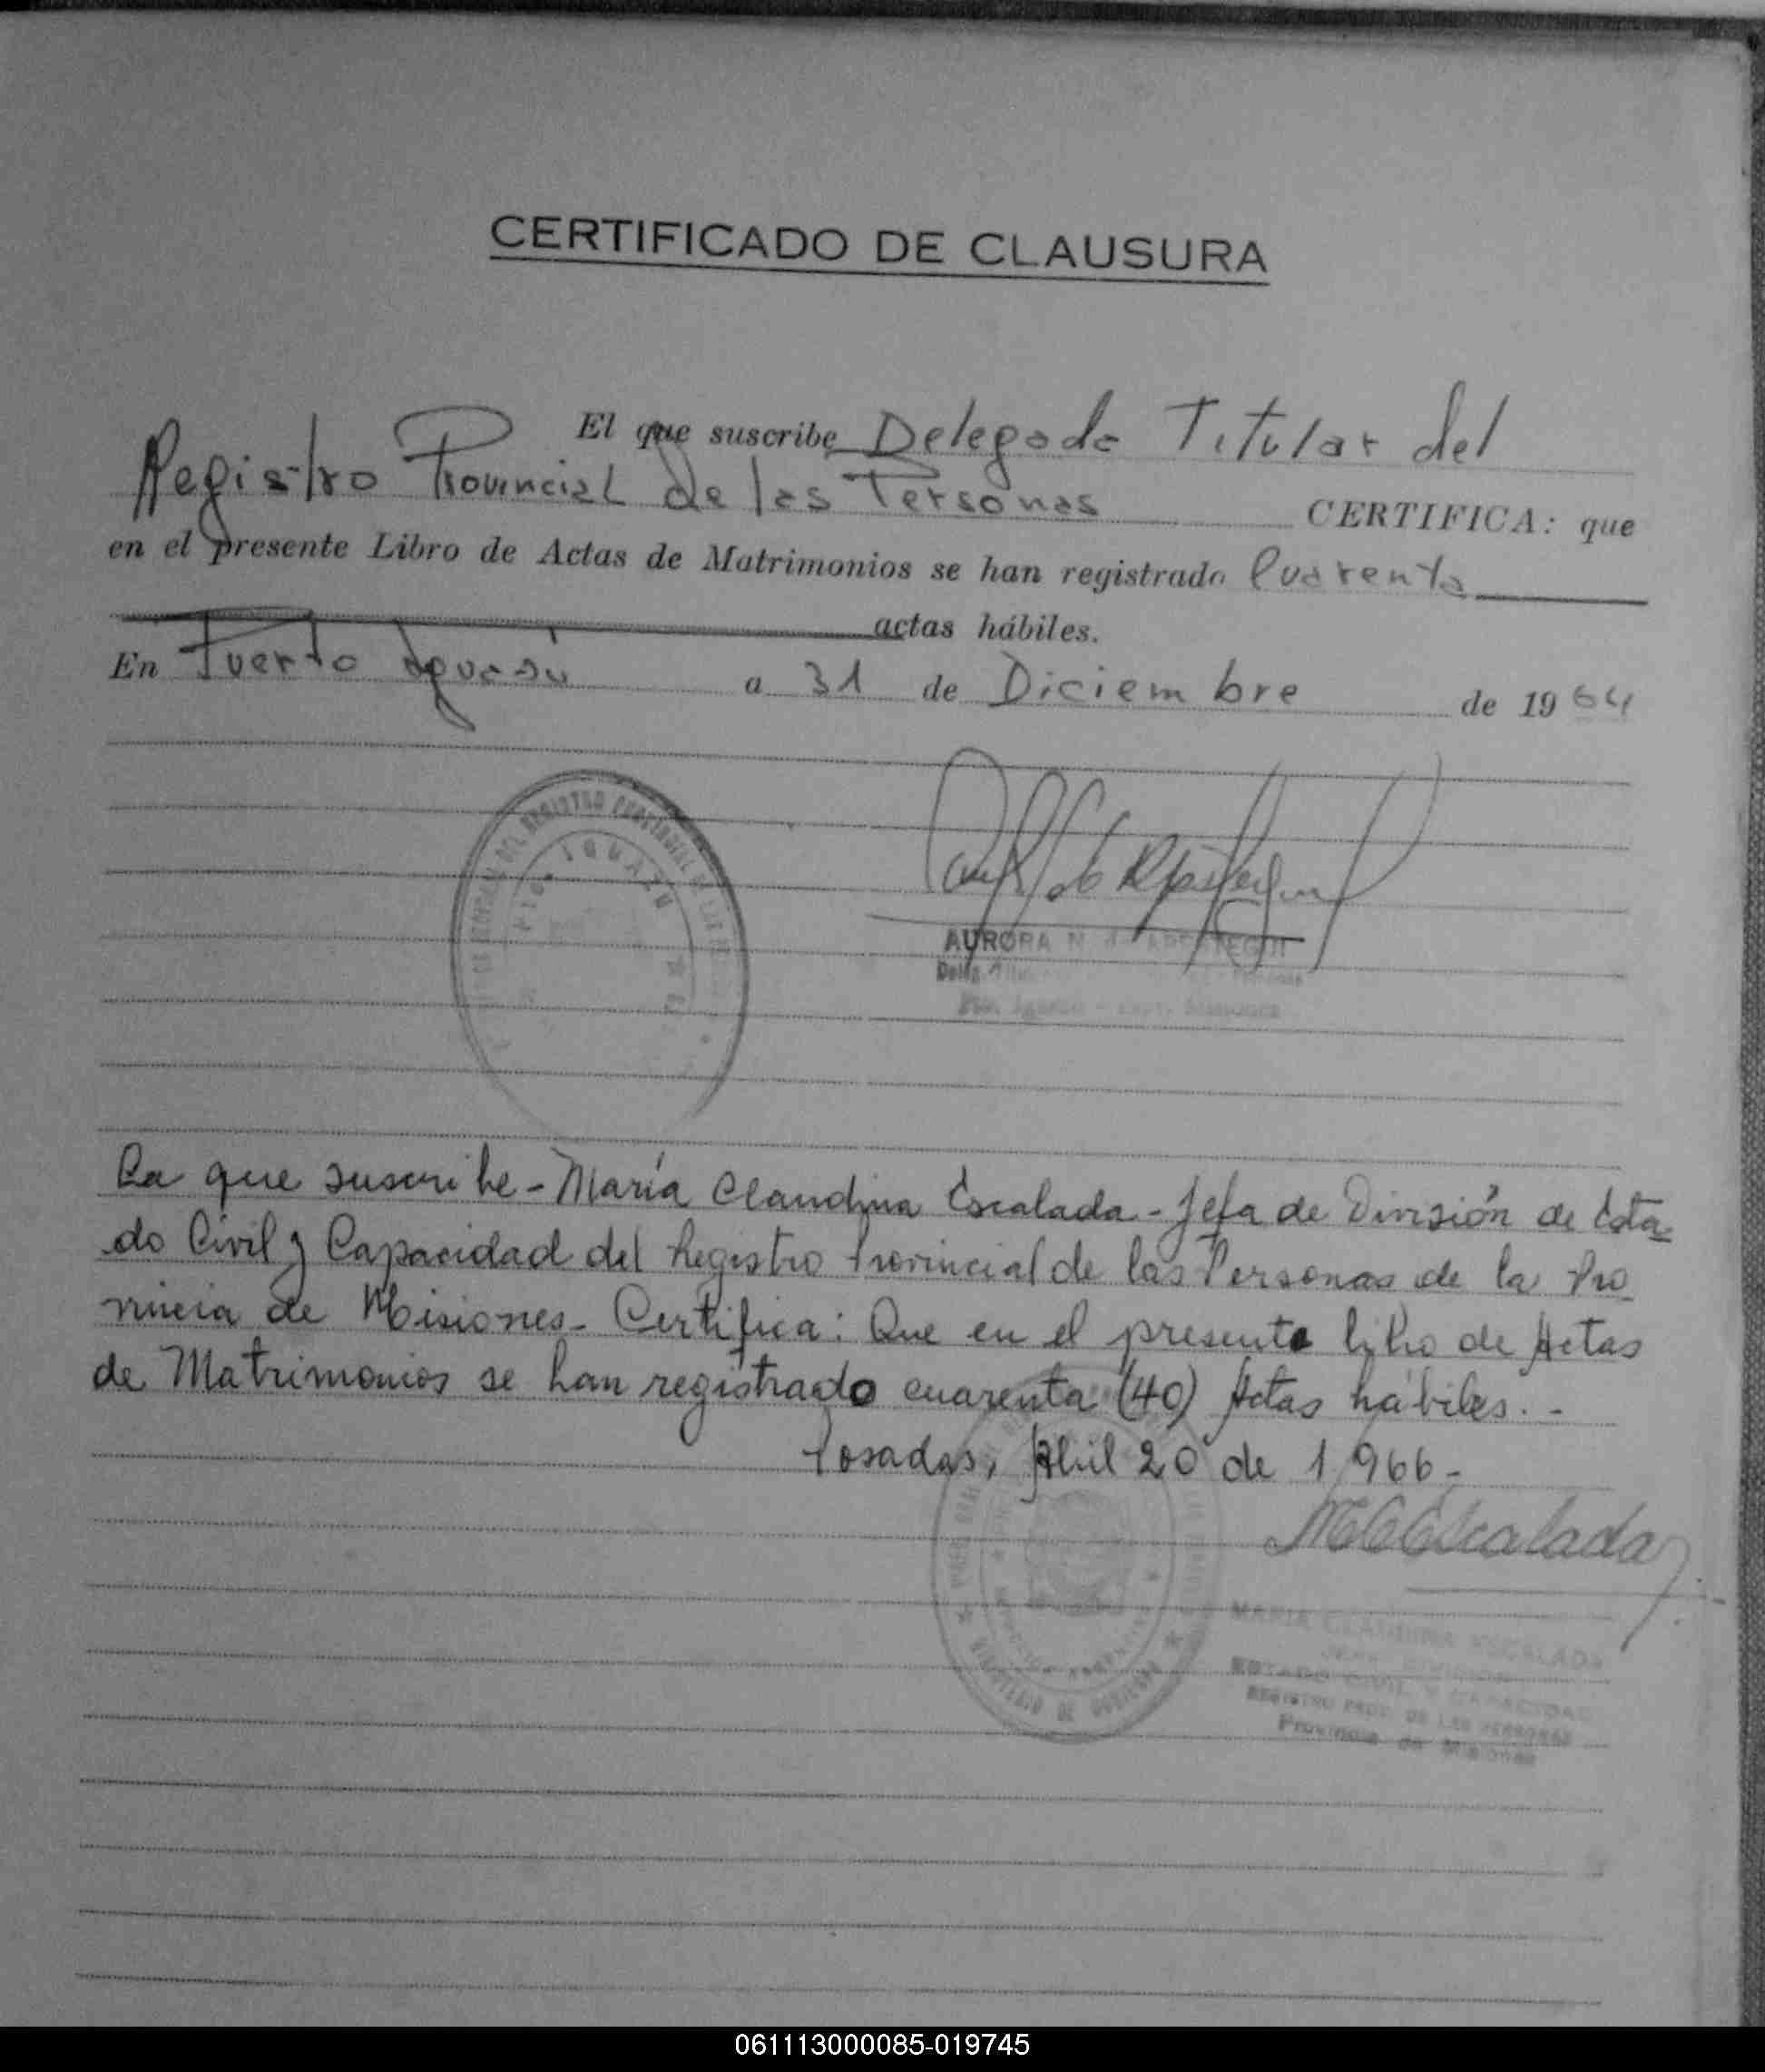 CERTIFICADO DE CLAUSURA
El que suscribe Delegado Titular del
Registro Provincial de las Personas CERTIFICA: que
en el presente Libro de Actas de Matrimonios se han registrado Cuarenta
actas hábiles.
En Puerto Iguazú a 31 de Diciembre de 1964
DEL REGISTRO PROVINCIAL DE LAS
IGUAZU
AURORA N.
La que suscribe - María Claudina Escalada - Jefa de División de Esta-
do Civil y Capacidad del Registro Provincial de las Personas de la Pro
vincia de Misiones - Certifica: Que en el presente libro de Actas
de Matrimonios se han registrado cuarenta (40) Actas hábiles. -
Posadas, Abril 20 de 1966 -
MCEscalada
MARIA CLAUDINA ESCALADA
JEFE DIVISION
ESTADO CIVIL Y CAPACIDAD
REGISTRO PROV. DE LAS PERSONAS
Provincia de Misiones
MINISTERIO DE GOBIERNO
061113000085-019745